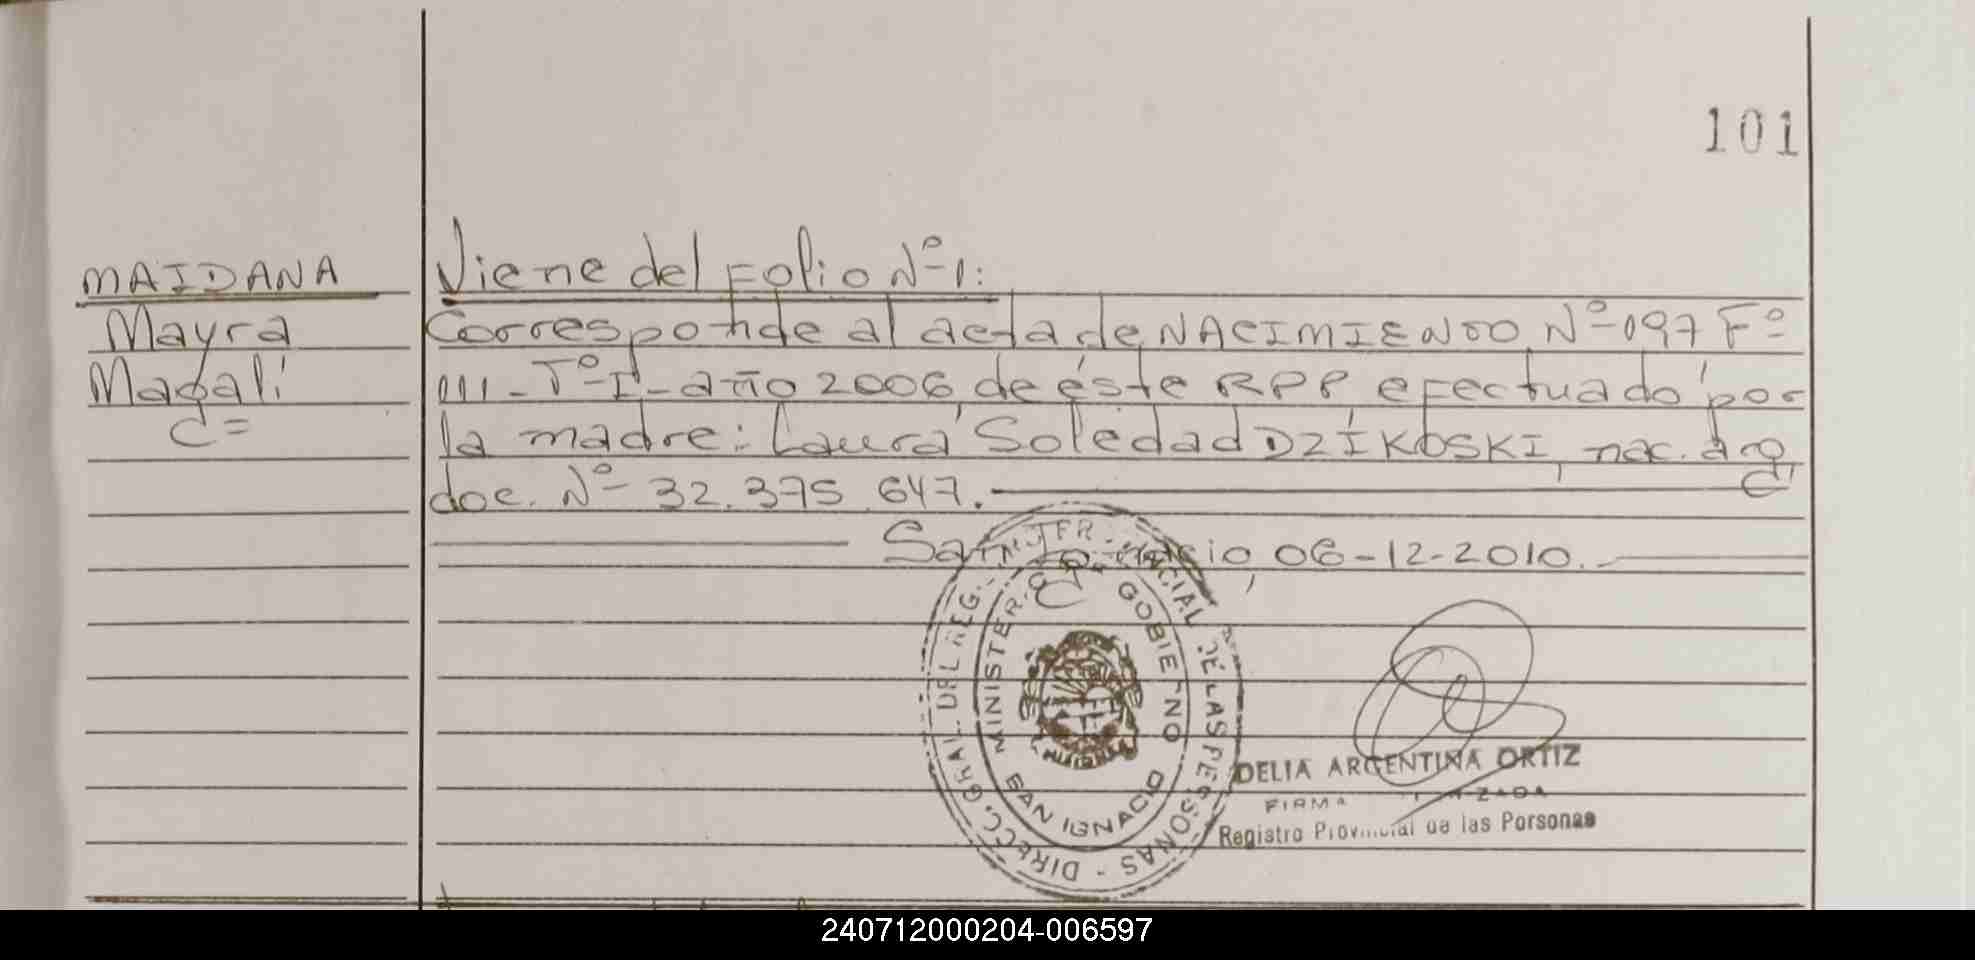 101
MAIDANA
Mayra
Magalí
C=
Viene del Folio Nº 1:
Corresponde al acta de NACIMIENTO Nº 097 Fº
111 - Tº I - año 2006, de éste RPP efectuado por
la madre: Laura Soledad DZIKOSKI, nac. arg,
doc. Nº 32.375.647.
San Ignacio, 06-12-2010.
DIRECC. GRAL. DEL REG. PROVINCIAL DE LAS PERSONAS
MINISTERIO GOBIERNO
SAN IGNACIO
DELIA ARGENTINA ORTIZ
FIRMA AUTORIZADA
Registro Provincial de las Personas
240712000204-006597